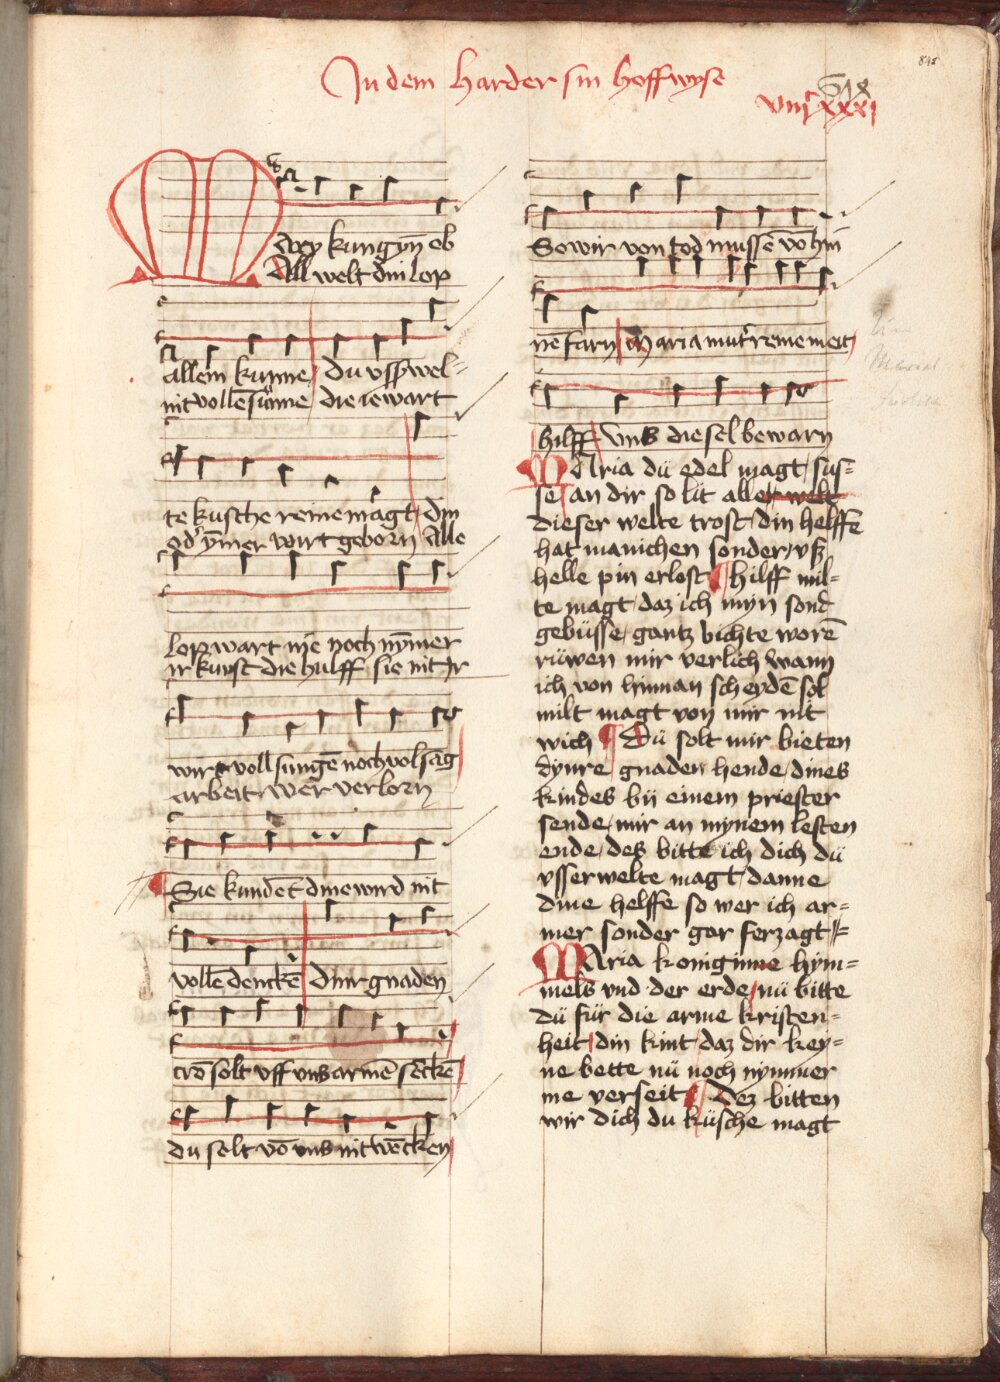 In dem Harder sin hoffwyse
845
518
viijͨxxxj
M
arey kungyn̄ ob
All welt din lop
allem kunne / du vsserwel=
nit volle sunne / die ie wart
te kusche reine magt / din
od' ȳmer wirt geborn Alle
lop wart nie noch nȳmer
ir kunst die hulff sie nit Ir
wirt voll sungē noch volsag
arbeit wer verlorn
Sie kundēt dine wird nit
vollē dencke din gnaden
trō solt vff vns armē sēckē
du solt vō vns nit wēcken
So wir von tod mussē vō hin
nē farn Maria mut'r reine meit
hilff vns die sel bewarn
MAria dü edel magt / sus=
se / an dir so lit aller welt
dieser welte trost / din helffe
hat manichen sonder / vsz
helle pin erlost Hilff mil=
te magt / daz ich myn sond
gebüsse / gantz bichte worē
rüwen mir verlich wann
ich von hinnan scheydē sol
milt magt von mir nit
wich Dü solt mir bieten
dynre gnaden hende / dines
kindes bij einem priester
sende / mir an mynem lesten
ende / des bitte ich dich dü
vsserwelte magt / danne
dine helffe so wer ich ar=
mer sonder gar ferzagt
MAria koniginne hym=
mels vnd der erde / nü bitte
dü für die arme kristen=
heit / din kint / daz dir key=
ne bette nü noch nymmer
me verseit Dez bitten
wir dich du küsche magt